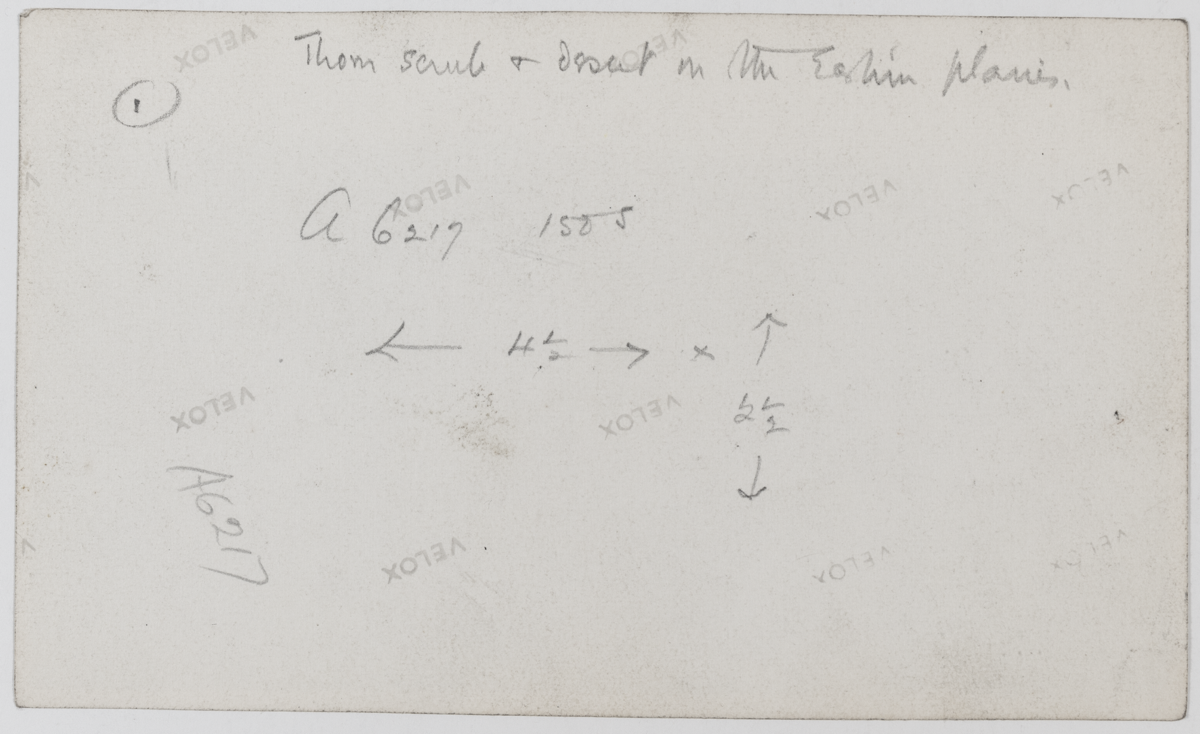 Thorn scrub + desert on the Eastern planes.
1
A 6217 150 S
← 4 1/2 → x ↑
2 1/2
↓
A6217
VELOX
VELOX
VELOX
VELOX
VELOX
VELOX
VELOX
VELOX
VELOX
VELOX